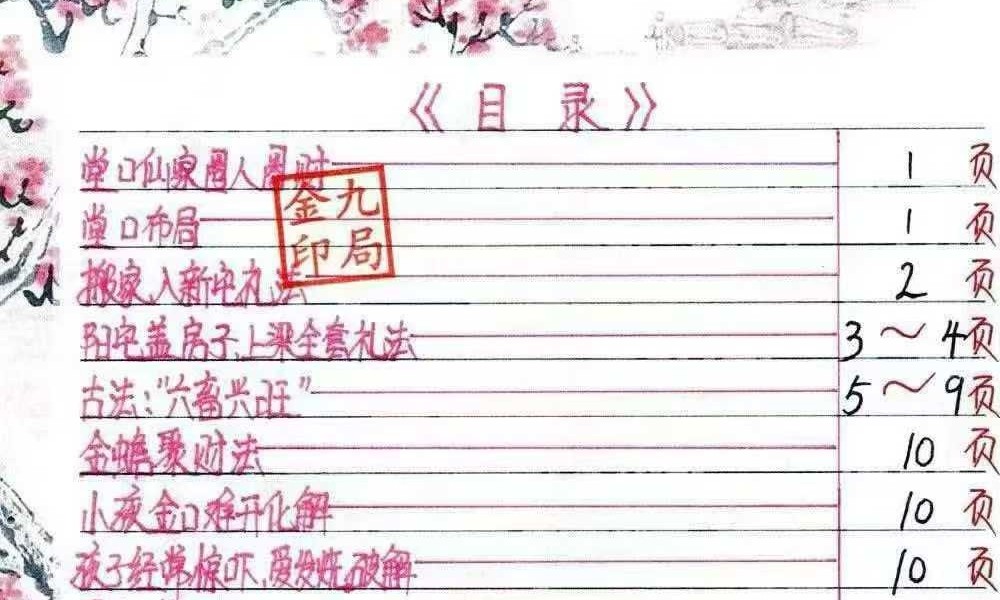 《目 录》
堂口仙家圈人圈财 1 页
堂口布局 1 页
搬家入新宅礼法 2 页
阳宅盖房子、上梁全套礼法 3~4页
古法:“六畜兴旺” 5~9页
金蟾聚财法 10 页
小孩金口难开化解 10 页
孩子经常惊吓、爱发烧破解 10 页
金九
印局